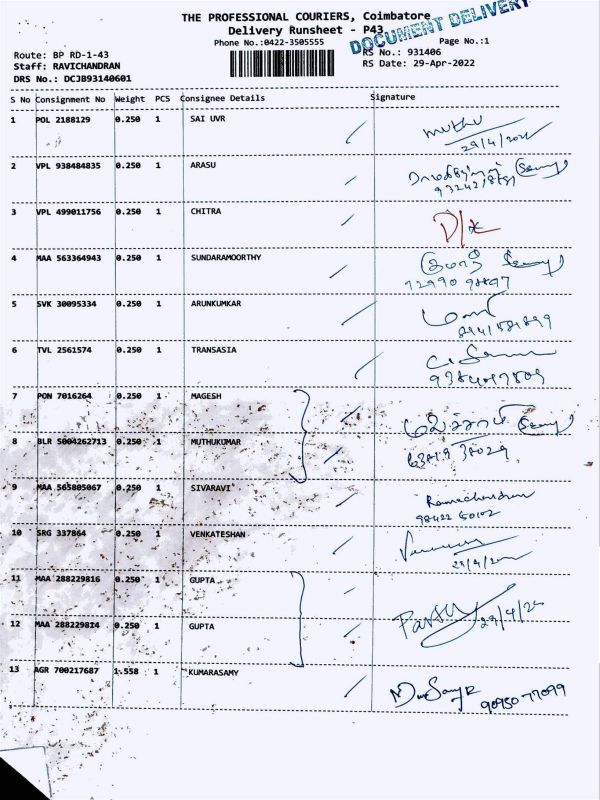 THE PROFESSIONAL COURIERS, Coimbatore
Delivery Runsheet - P43
DOCUMENT DELIVERY
Phone No.:0422-3505555
Page No.:1
Route: BP RD-1-43
RS No.: 931406
Staff: RAVICHANDRAN
RS Date: 29-Apr-2022
DRS No.: DCJB93140601
S No Consignment No Weight PCS Consignee Details Signature
1 POL 2188129 0.250 1 SAI UVR Muthu
2 VPL 938484835 0.250 1 ARASU
3 VPL 499011756 0.250 1 CHITRA
4 MAA 563364943 0.250 1 SUNDARAMOORTHY
5 SVK 30095334 0.250 1 ARUNKUMKAR
6 TVL 2561574 0.250 1 TRANSASIA
7 PON 7016264 0.250 1 MAGESH
8 BLR 5004262713 0.250 1 MUTHUKUMAR
9 MAA 565805067 0.250 1 SIVARAVI Ramachandran
10 SRG 337864 0.250 1 VENKATESHAN
11 MAA 288229816 0.250 1 GUPTA
12 MAA 288229814 0.250 1 GUPTA
13 AGR 700217687 1.558 1 KUMARASAMY
90950 77099